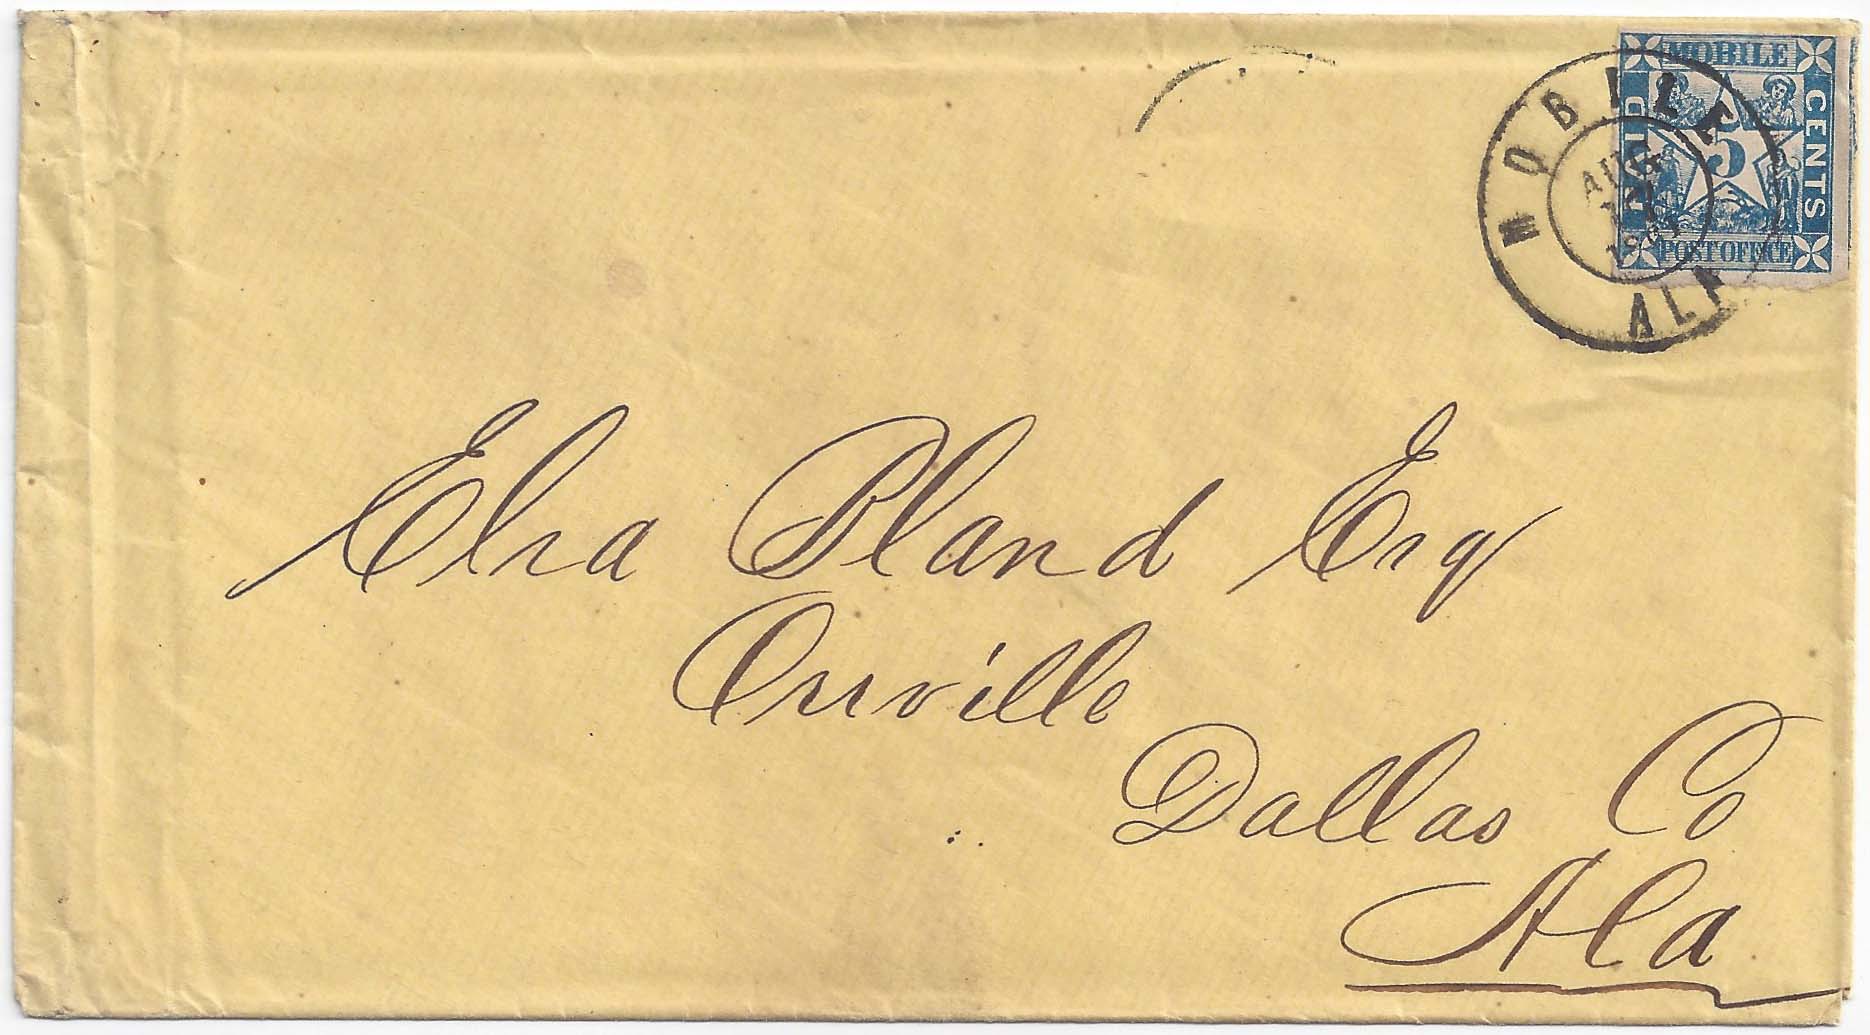 MOBILE
CENTS
5
POST OFFICE
MOBILE
AUG
ALA
Elra Bland Esq
Orrville
Dallas Co
Ala